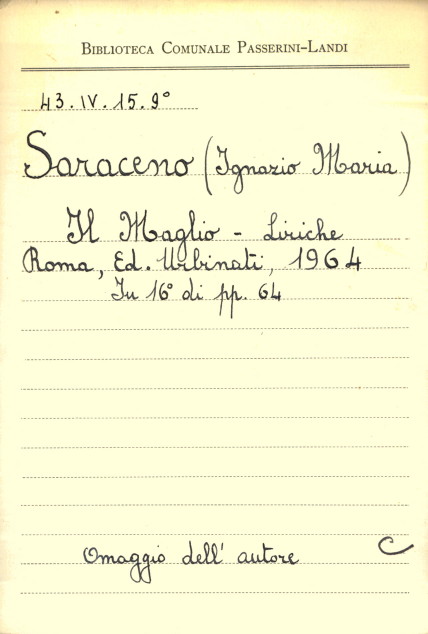 BIBLIOTECA COMUNALE PASSERINI-LANDI
43.IV.15.9°
Saraceno (Ignazio Maria)
Il Maglio - Liriche
Roma, Ed. Urbinati, 1964
In 16° di pp. 64
Omaggio dell' autore C